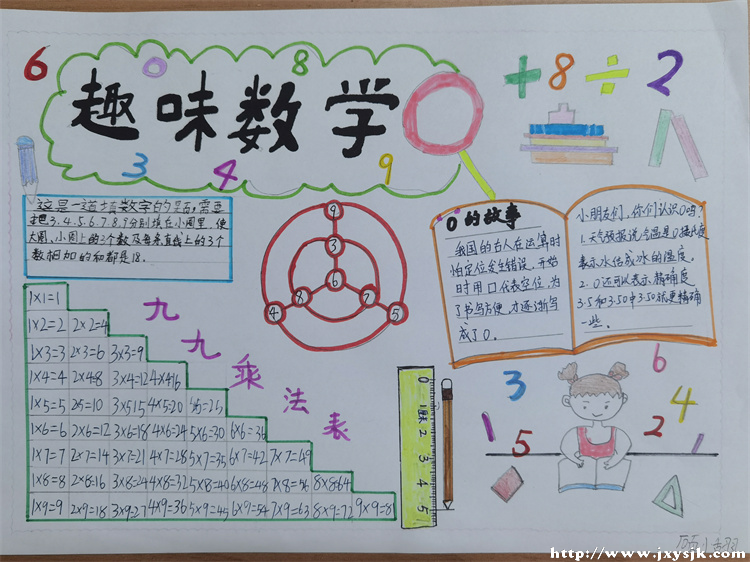 6
0
8
趣味数学
3
4
9
+8÷2
这是一道填数字的题,需要
把3.4.5.6.7.8.9分别填在小圈里,使
大圈、小圈上的3个数及每条直线上的3个
数相加的和都是18.
9
3
6
8
7
4
5
0的故事
我国的古人在运算时
怕定位发生错误,开始
时用口代表空位,为
了书写方便,才逐渐写
成了0.
小朋友们,你们认识0吗?
1.天气预报说气温是0摄氏度
表示水结成冰的温度.
2.0还可以表示精确度
3.5和3.50中3.50就更精确
一些.
九九乘法表
1×1=1
1×2=2 2×2=4
1×3=3 2×3=6 3×3=9
1×4=4 2×4=8 3×4=12 4×4=16
1×5=5 2×5=10 3×5=15 4×5=20 5×5=25
1×6=6 2×6=12 3×6=18 4×6=24 5×6=30 6×6=36
1×7=7 2×7=14 3×7=21 4×7=28 5×7=35 6×7=42 7×7=49
1×8=8 2×8=16 3×8=24 4×8=32 5×8=40 6×8=48 7×8=56 8×8=64
1×9=9 2×9=18 3×9=27 4×9=36 5×9=45 6×9=54 7×9=63 8×9=72 9×9=8
0
1
2
3
4
5
3
6
4
1
5
2
1
http://www.jxysjk.com/